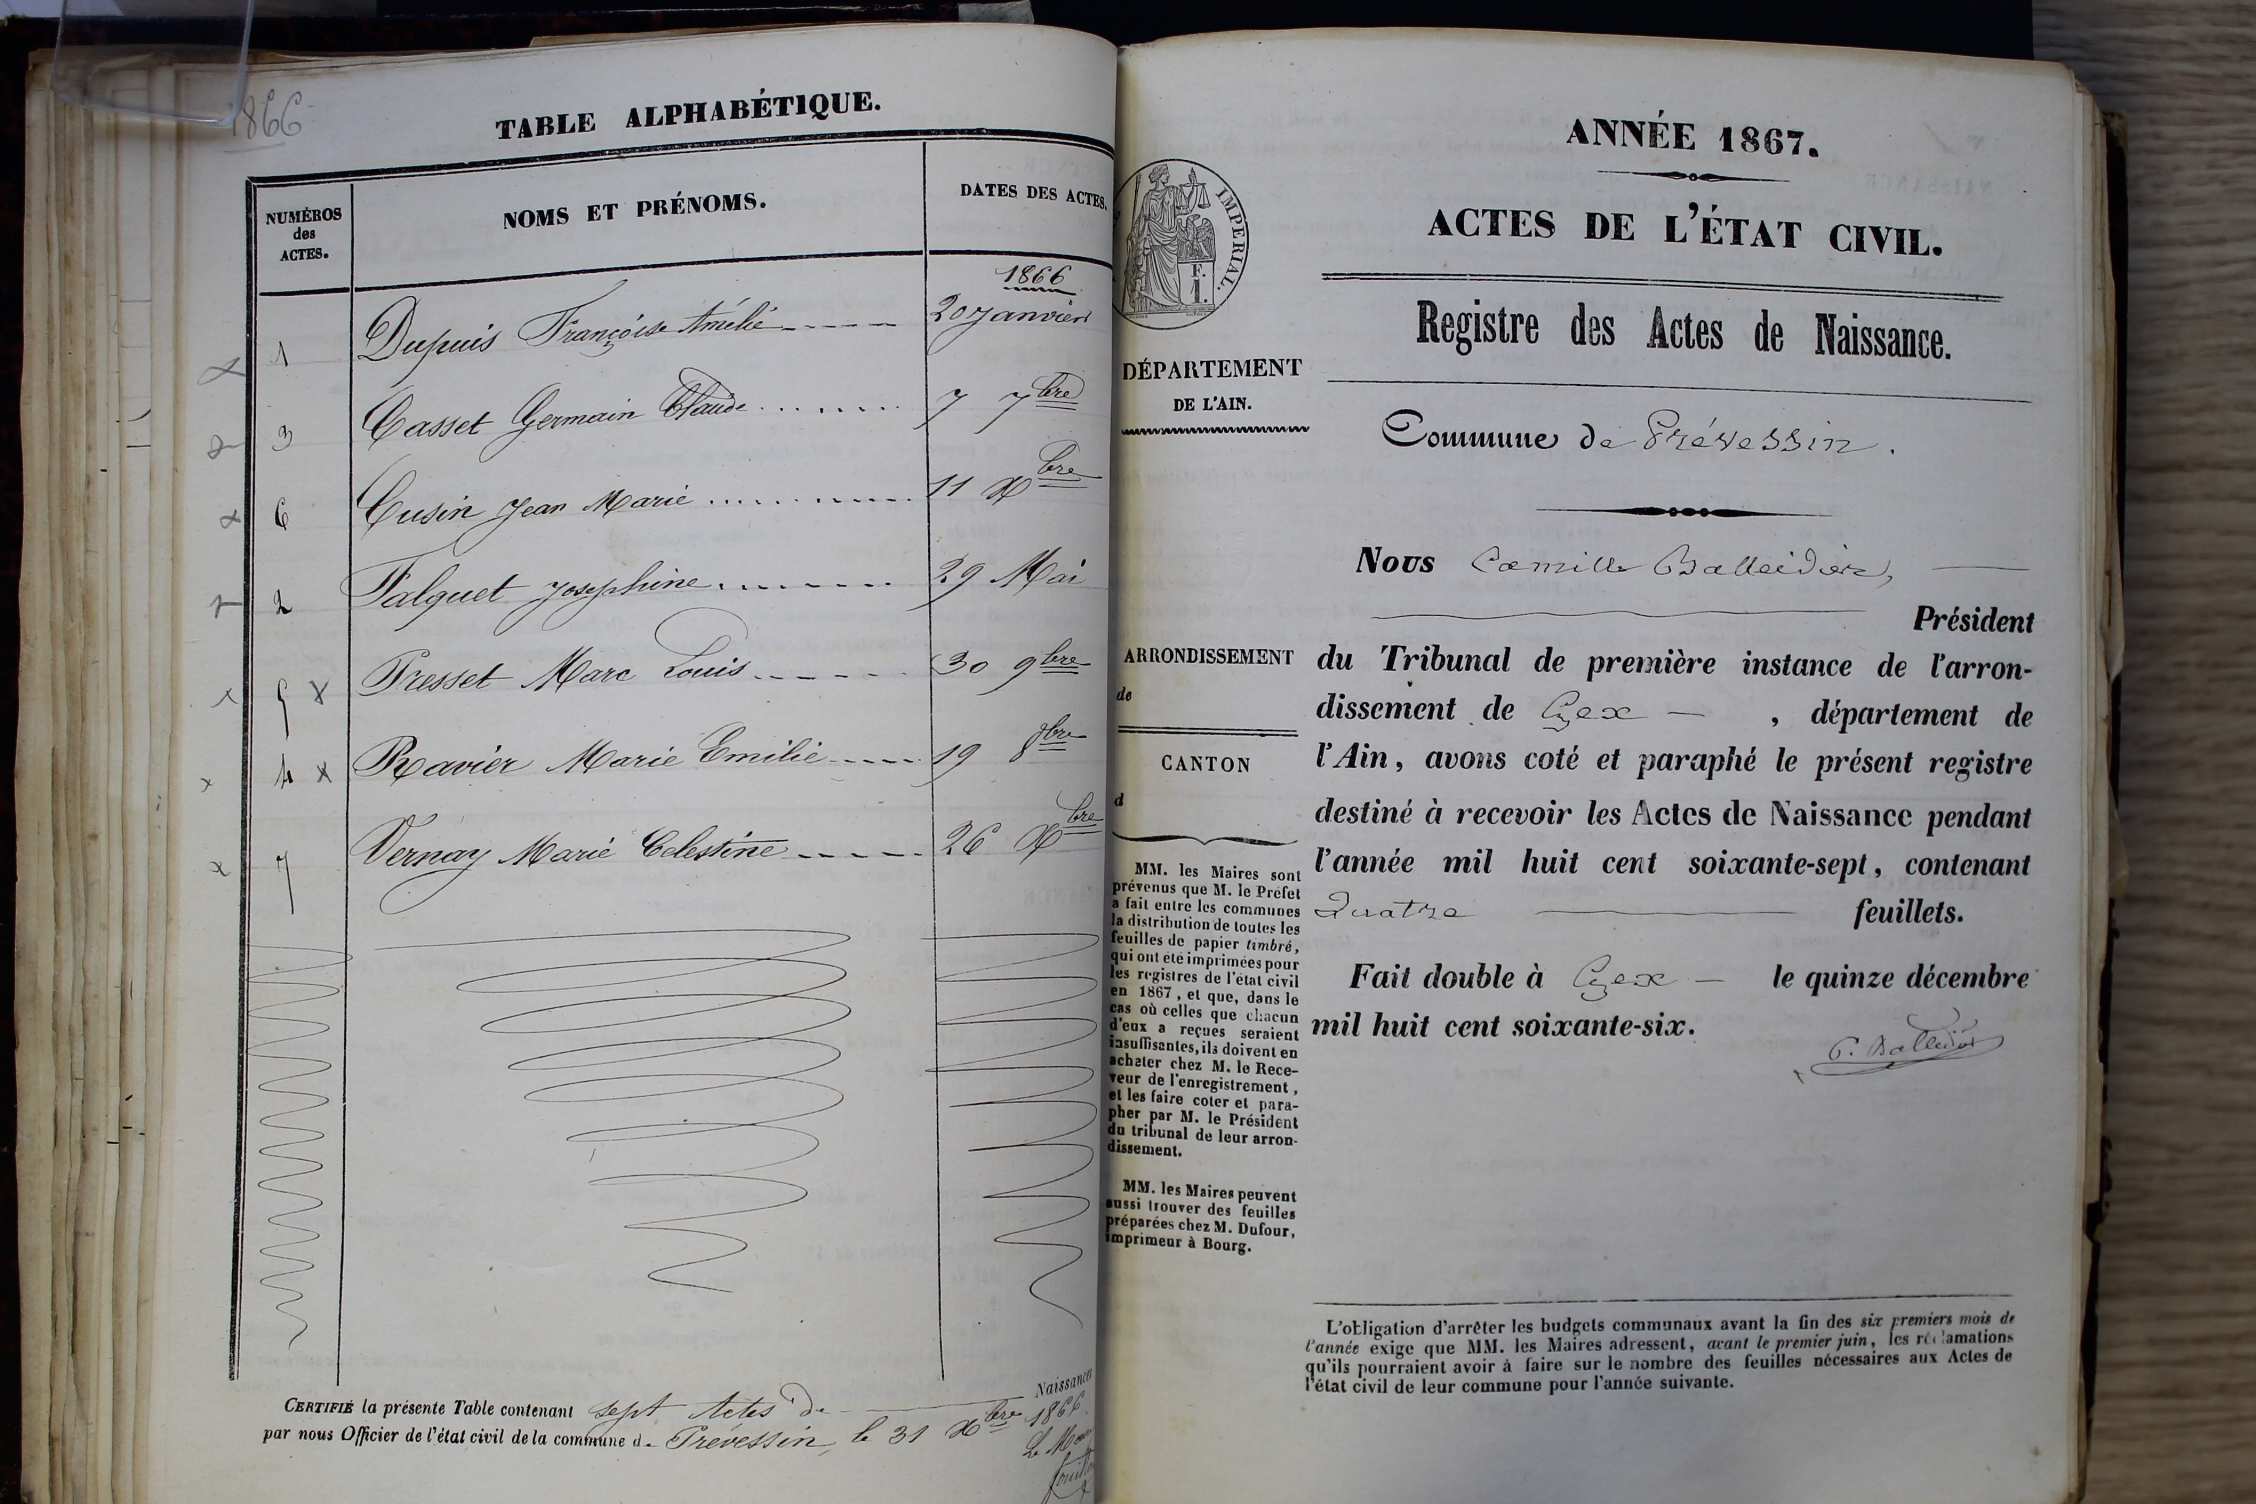 1866
TABLE ALPHABÉTIQUE.
NUMÉROS
des
ACTES.
NOMS ET PRÉNOMS.
DATES DES ACTES.
1866
1 Dupuis Françoise Amélie 20 Janvier
3 Casset Germain Claude 7 7bre
6 Cusin Jean Marie 11 Xbre
2 Falquet Josephine 29 Mai
5 Presset Marc Louis 30 9bre
4 Ravier Marie Emilie 19 8bre
7 Vernay Marie Celestine 26 Xbre
CERTIFIÉ la présente Table contenant sept Actes de Naissances
par nous Officier de l'état civil de la commune de Prévessin, le 31 Xbre 1866
Le Maire
IMPERIAL.
F.
1.
DÉPARTEMENT
DE L'AIN.
ARRONDISSEMENT
de
CANTON
d
MM. les Maires sont
prévenus que M. le Préfet
a fait entre les communes
la distribution de toutes les
feuilles de papier timbré,
qui ont été imprimées pour
les registres de l'état civil
en 1867, et que, dans le
cas où celles que chacun
d'eux a reçues seraient
insuffisantes, ils doivent en
acheter chez M. le Rece-
veur de l'enregistrement,
et les faire coter et para-
pher par M. le Président
du tribunal de leur arron-
dissement.
MM. les Maires peuvent
aussi trouver des feuilles
préparées chez M. Dufour,
imprimeur à Bourg.
ANNÉE 1867.
ACTES DE L'ÉTAT CIVIL.
Registre des Actes de Naissance.
Commune de Prévessin.
Nous Camille Balleidier,
Président
du Tribunal de première instance de l'arron-
dissement de Gex, département de
l'Ain, avons coté et paraphé le présent registre
destiné à recevoir les Actes de Naissance pendant
l'année mil huit cent soixante-sept, contenant
Quatre feuillets.
Fait double à Gex le quinze décembre
mil huit cent soixante-six.
C. Balleidier
L'obligation d'arrêter les budgets communaux avant la fin des six premiers mois de
l'année exige que MM. les Maires adressent, avant le premier juin, les réclamations
qu'ils pourraient avoir à faire sur le nombre des feuilles nécessaires aux Actes de
l'état civil de leur commune pour l'année suivante.